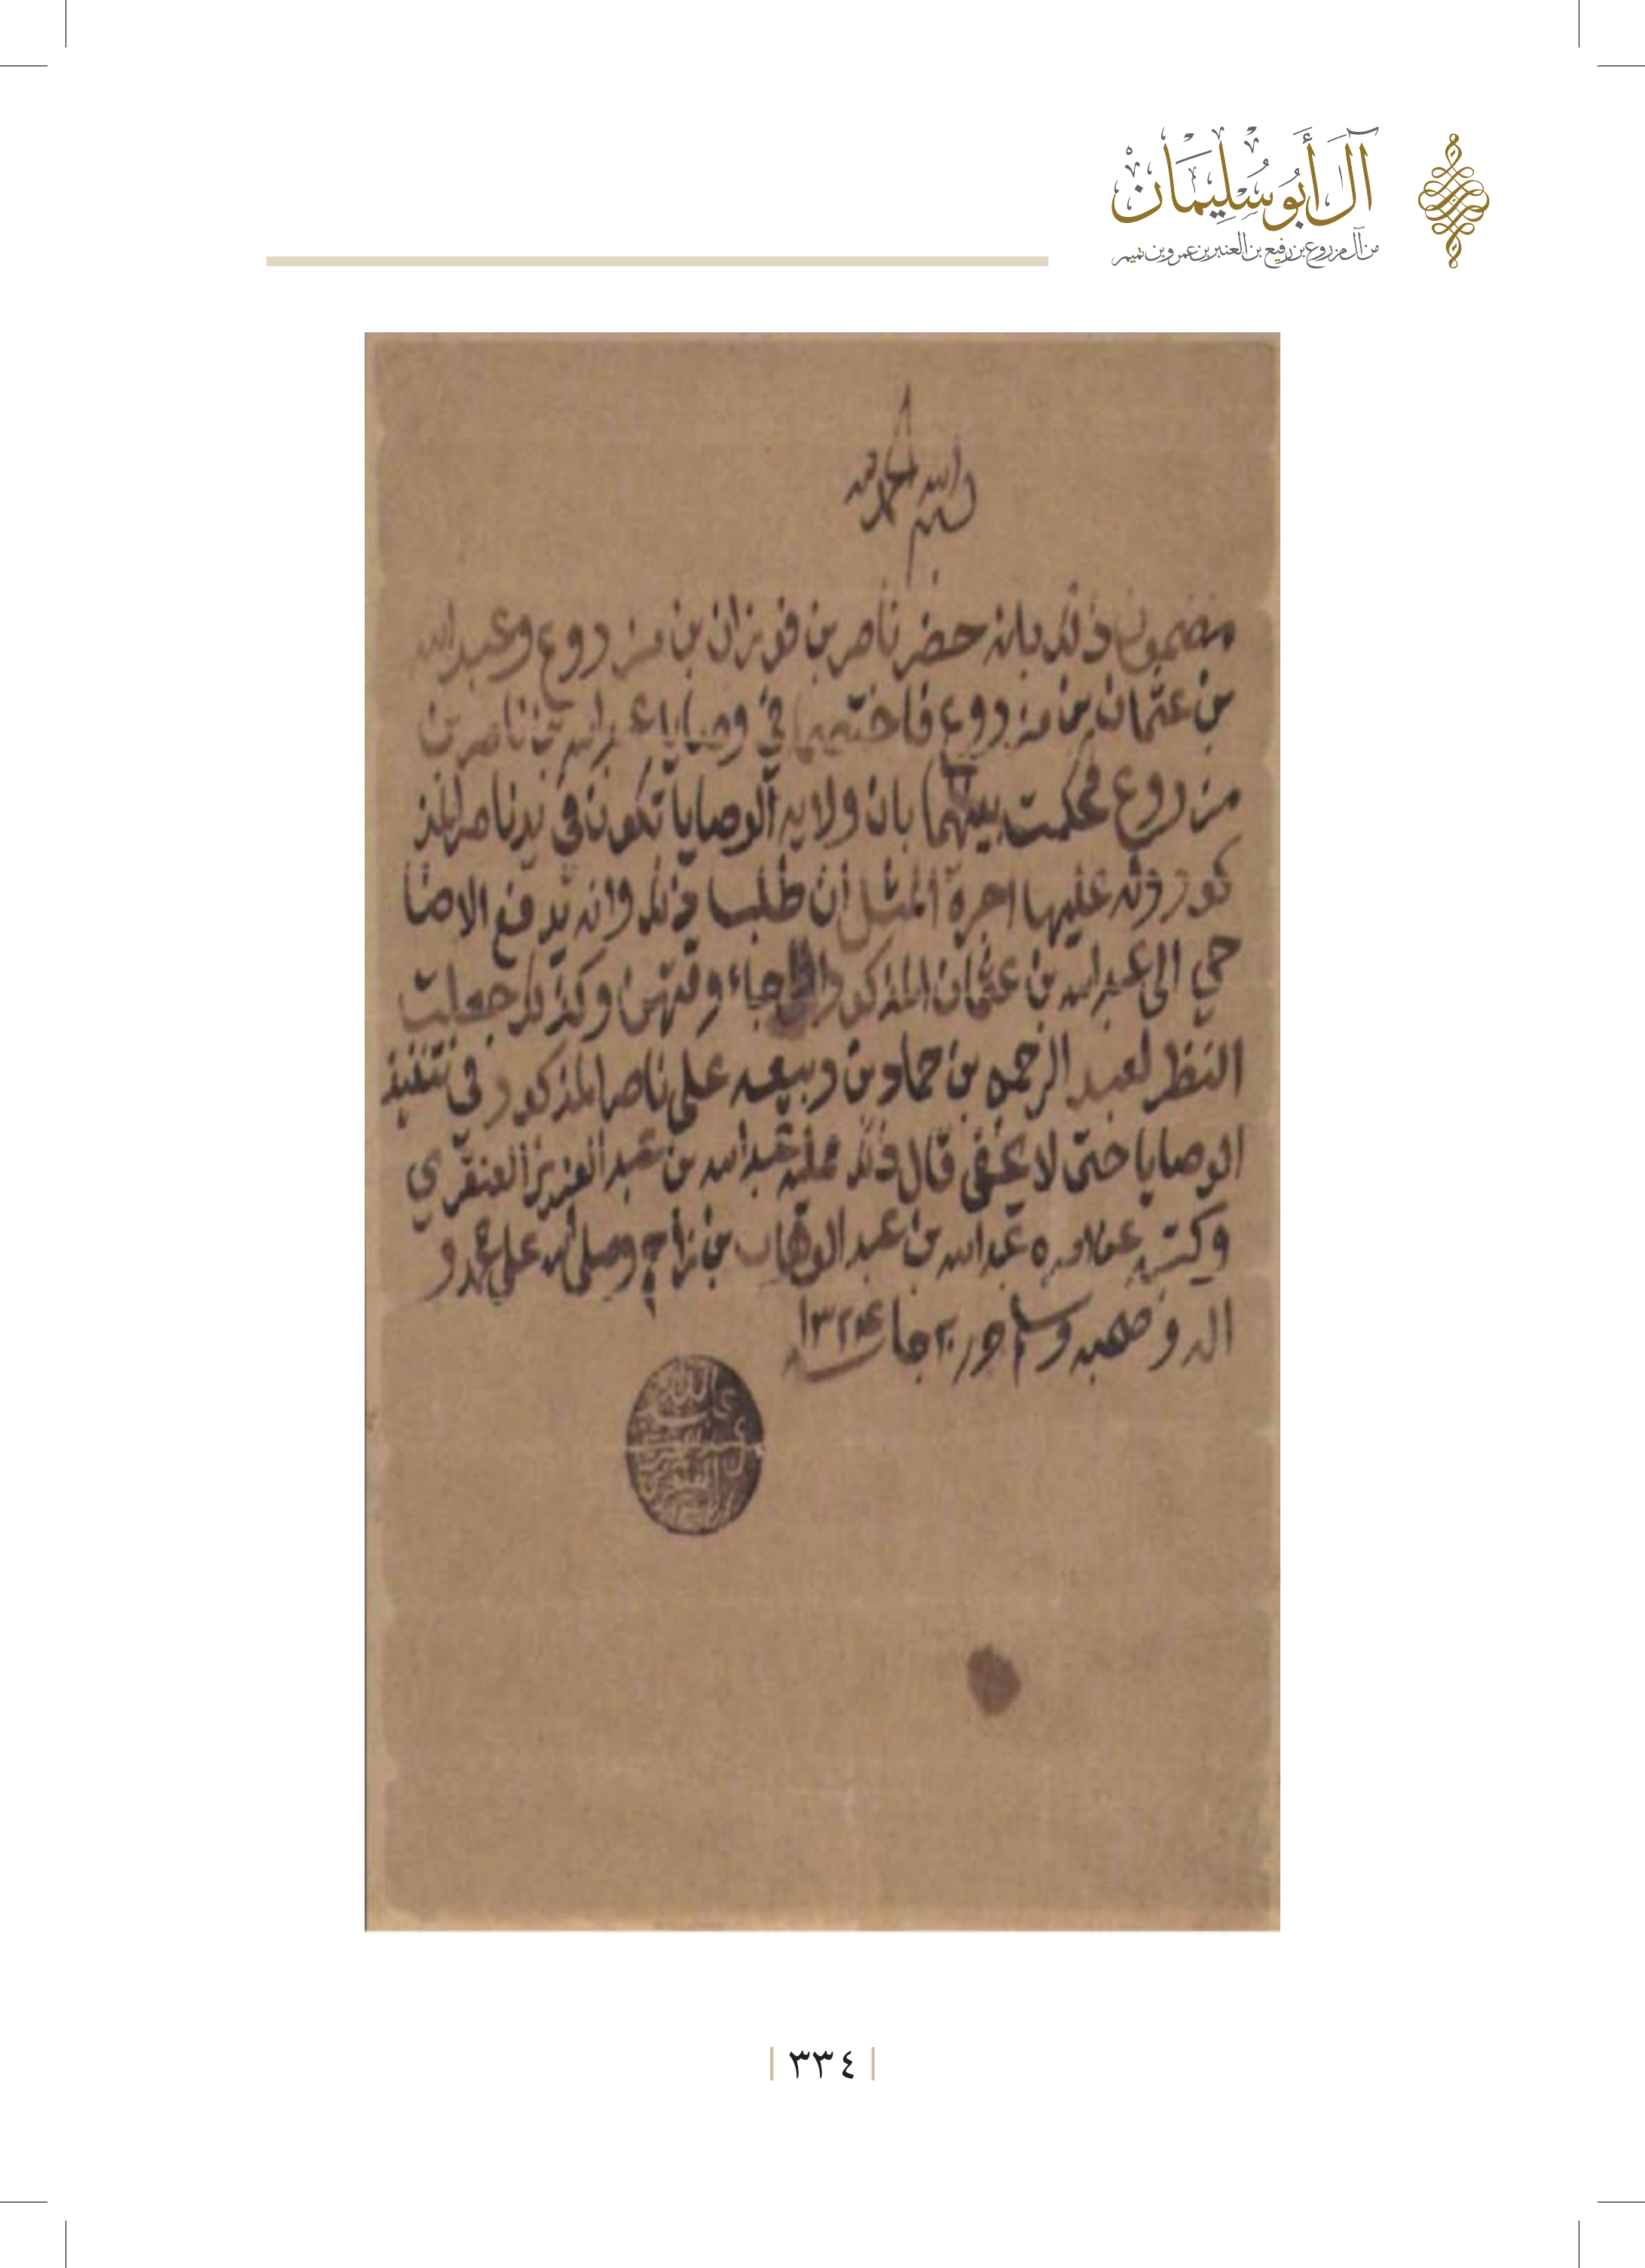 آل أبو سليمان
من آل مزروع بن رفيع بن العنبر بن عمرو بن تميم
بسم الله الرحمن
مضمون ذلك بانه حضر ناصر بن فوزان بن مزروع وعبدالله
بن عثمان بن مزروع فاختصما في وصايا عبدالله بن ناصر بن
مزروع فحكمت بينهما بان ولاية الوصايا تكون في يد ناصر المذ
كور وله عليها اجرة المثل ان طلب ذلك وانه يدفع الاضا
حي الى عبدالله بن عثمان المذكور جاء وقتهن وكذلك جعلت
النظر لعبد الرحمن بن حماد بن ربيعه على ناصر المذكور في تنفيذ
الوصايا حتى لا يخفى قال ذلك ممليه عبدالله بن عبد العزيز العنقري
وكتبه عن امره عبدالله بن عبد الوهاب بن زاحم وصلى الله على محمد و
اله وصحبه وسلم حرر ٢٠ جا سنه
٣٣٤